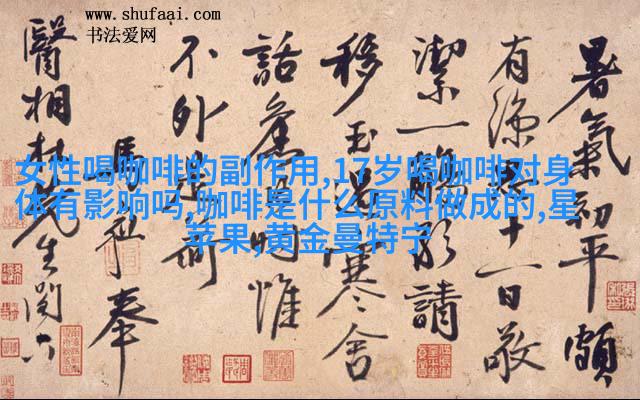 www.shufaai.com
书法爱网
女性喝咖啡的副作用,17岁喝咖啡对身
体有影响吗,咖啡是什么原料做成的,星
苹果,黄金曼特宁
暑氣初平頗
有涼十一日敬
潔一觴請
移玉過寒舍
話舊惟
不外是荷
馬奉
醫相杜先生閣下